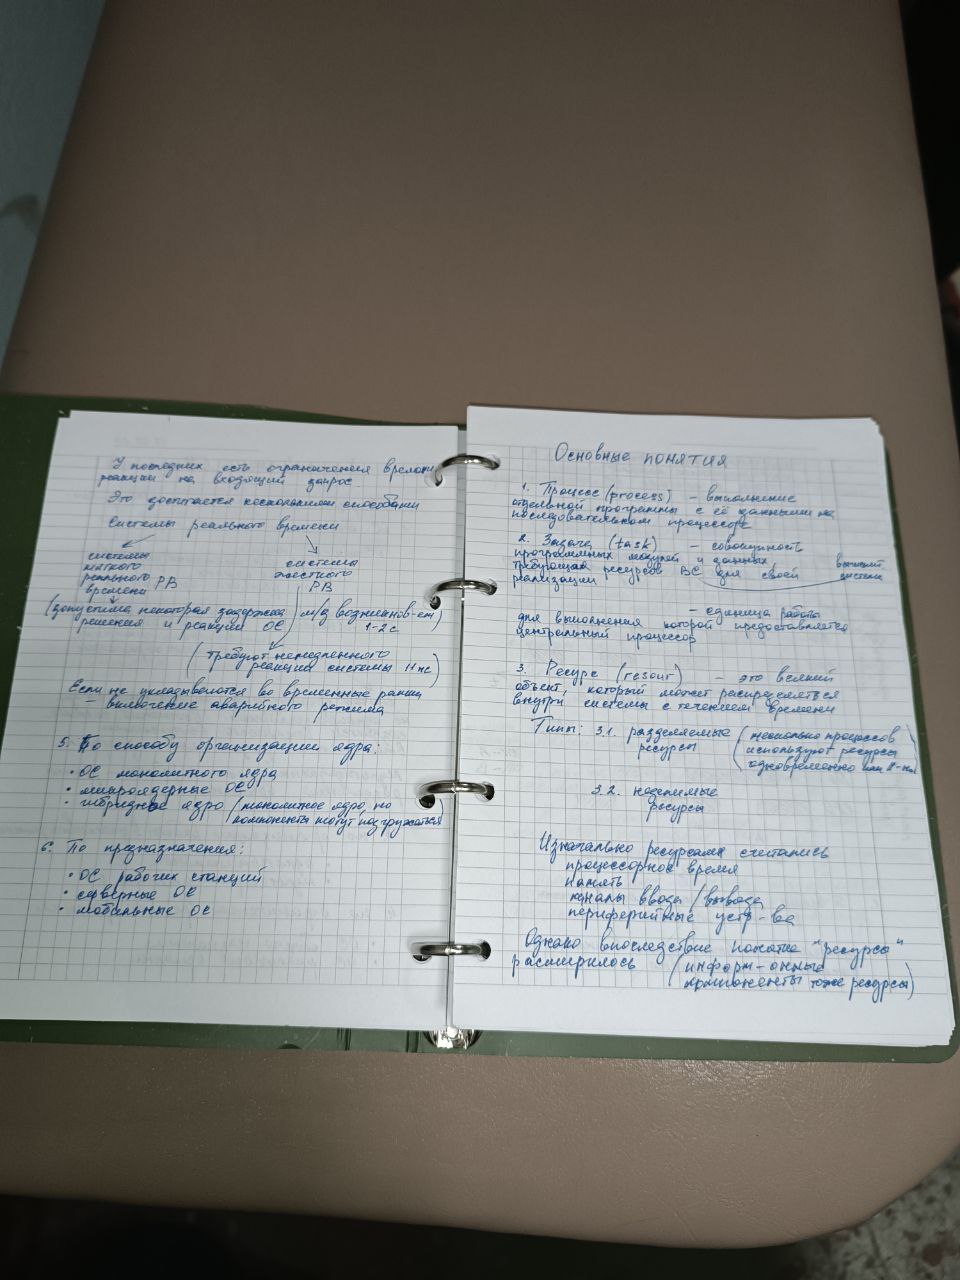 У последних есть ограничения времени
реакции на входящий запрос
Это достигается несколькими способами
Системы реального времени
системы
мягкого
реального РВ
времени
системы
жесткого
РВ
(допустима некоторая задержка м/д возникнов-ем)
решения и реакции ОС 1-2с
(требуют немедленного
реакции системы
Если не укладываются во временные рамки
– включение аварийного режима
5. По способу организации ядра:
• ОС монолитного ядра
• микроядерные ОС
• гибридные ядро (монолитное ядро, но
компоненты могут подгружаться)
6. По предназначения:
• ОС рабочих станций
• серверные ОС
• мобильные ОС
Основные понятия
1. Процесс (process) – выполнение
отдельной программы с её данными на
последовательном процессоре
2. Задача (task) – совокупность
программных модулей и данных,
требующая ресурсов ВС для своей
реализации
– единица работы
для выполнения которой предоставляется
центральный процессор
3. Ресурс (resour) – это всякий
объект, который может распределяться
внутри системы с течением времени
Типы: 3.1. разделяемые (несколько процессов
ресурсы используют ресурсы
одновременно или
3.2. неделимые
ресурсы
Изначально ресурсами считались
процессорное время
память
каналы ввода/вывода
периферийные устр-ва
Однако впоследствие понятие "ресурсы"
расширилось (информ-онные
компоненты тоже ресурсы)